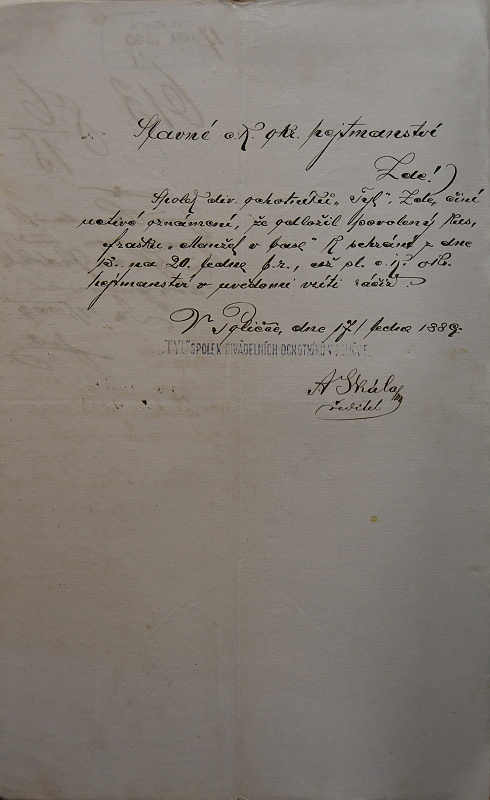 Slavné c.k. okr. hejtmanství
Zde!
Spolek div. ochotníků „Tyl“, Zde, činí
uctivě oznámení, že odložil povolený kus,
frašku „Manžel v base“ k sehrání z dne
13. na 20. ledna b.r., což sl. c.k. okr.
hejtmanství v uvědomí vzíti ráčiž.
V Poličce, dne 17/1 ledna 1889.
„TYL“ SPOLEK DIVADELNÍCH OCHOTNÍKŮ V POLIČCE.
A Skála
ředitel